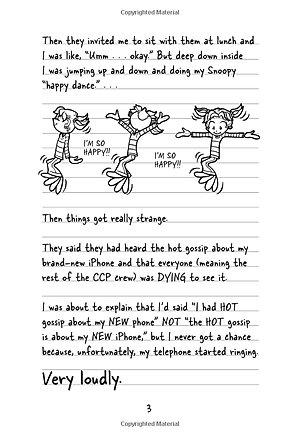 Copyrighted Material
Then they invited me to sit with them at lunch and
I was like, "Umm . . . okay." But deep down inside
I was jumping up and down and doing my Snoopy
"happy dance." . . .
I'M SO
HAPPY!!!
I'M SO
HAPPY!!!
Then things got really strange.
They said they had heard the hot gossip about my
brand-new iPhone and that everyone (meaning the
rest of the CCP crew) was DYING to see it.
I was about to explain that I'd said "I had HOT
gossip about my NEW phone" NOT "the HOT gossip
is about my NEW iPhone," but I never got a chance
because, unfortunately, my telephone started ringing.
Very loudly.
3
Copyrighted Material